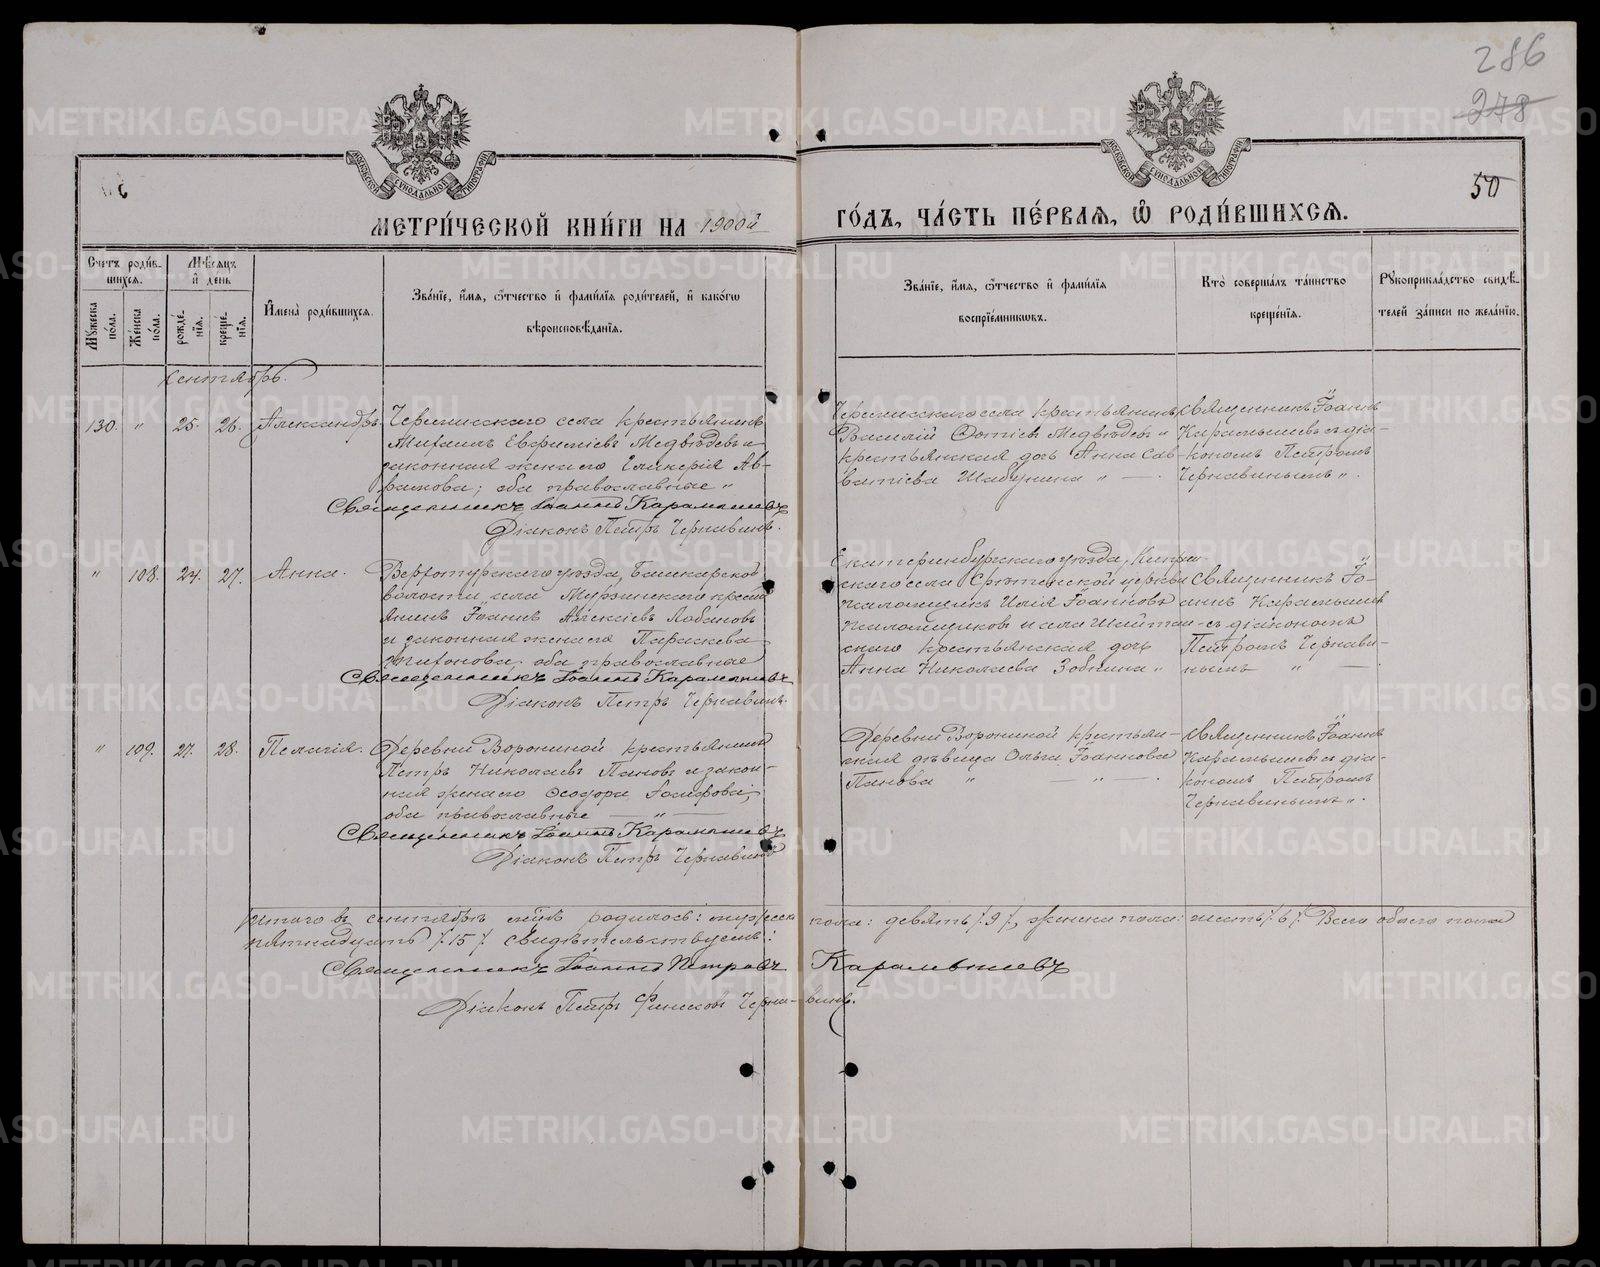 286
278
50
МЕТРИ́ЧЕСКОЙ КНИ́ГИ НА 1900й ГО́ДЪ, ЧА́СТЬ ПЕ́РВАЯ, Ѡ҆ РОДИ́ВШИХСЯ.
Счетъ роди́в-
шихся.
Мꙋ́жеска по́ла.
Же́нска по́ла.
Мѣ́сяцъ и҆ день
рожде́-
нїя.
креще́-
нїя.
И҆мена̀ роди́вшихся.
Зва́нїе, и҆́мя, ѻ҆́тчество и҆ фами́лїѧ роди́телей, и҆ како́гѡ
вѣроисповѣ́данїѧ.
Зва́нїе, и҆́мя, ѻ҆́тчество и҆ фами́лїѧ
воспрїе́мникѡвъ.
Кто̀ соверша́лъ та́инство
креще́нїѧ.
Рꙋкоприкла́дство свидѣ́-
телей за́писи по жела́нїю.
Сентябрь.
130. " 25. 26. Александръ.
Черемисскаго села крестьянинъ
Михаилъ Евфимiевъ Медвѣдевъ и
законная жена его Гликерiя Ав-
рамова; оба православные "
Священникъ Iоаннъ Карамышевъ
Дiаконъ Петръ Чернавинъ.
Черемисскаго села крестьянинъ
Василiй Фотiевъ Медвѣдевъ и
крестьянская дочь Анна Сав-
ватiева Шабунина " — .
Священникъ Iоаннъ
Карамышевъ съ дiа-
кономъ Петромъ
Чернавинымъ ".
" 108. 24. 27. Анна.
Верхотурскаго уѣзда, Башкарской
волости, села Мурзинскаго крест-
янинъ Iоаннъ Алексiевъ Лобановъ
и законная жена его Параскева
оба православные
Священникъ Iоаннъ Карамышевъ
Дiаконъ Петръ Чернавинъ.
Екатеринбургскаго уѣзда,
скаго села Срѣтенской церкви
псаломщикъ Илiя Iоанновъ
и села Шайтан-
скаго крестьянская дочь
Анна Николаева Зобнина "
Священникъ Iо-
аннъ Карамышевъ
съ дiакономъ
Петромъ Чернави-
нымъ " — .
" 109. 27. 28. Пелагiя.
Деревни Ворониной крестьянинъ
Петръ Николаевъ Пановъ и закон-
ная жена его Ѳеодора
оба православные — " —
Священникъ Iоаннъ Карамышевъ
Дiаконъ Петръ Чернавинъ
Деревни Ворониной крестьян-
ская дѣвица Ольга Iоаннова
Панова " — " — .
Священникъ Iоаннъ
Карамышевъ съ дiа-
кономъ Петромъ
Чернавинымъ ".
Итого въ сентябрѣ мѣс. родилось: мужеска пола: девять /9/, женска пола: шесть /6/. Всего обоего пола
пятнадцать /15/. Свидѣтельствуемъ:
Священникъ Iоаннъ Петровъ Карамышевъ
Дiаконъ Петръ Чернавинъ.
METRIKI.GASO-URAL.RU